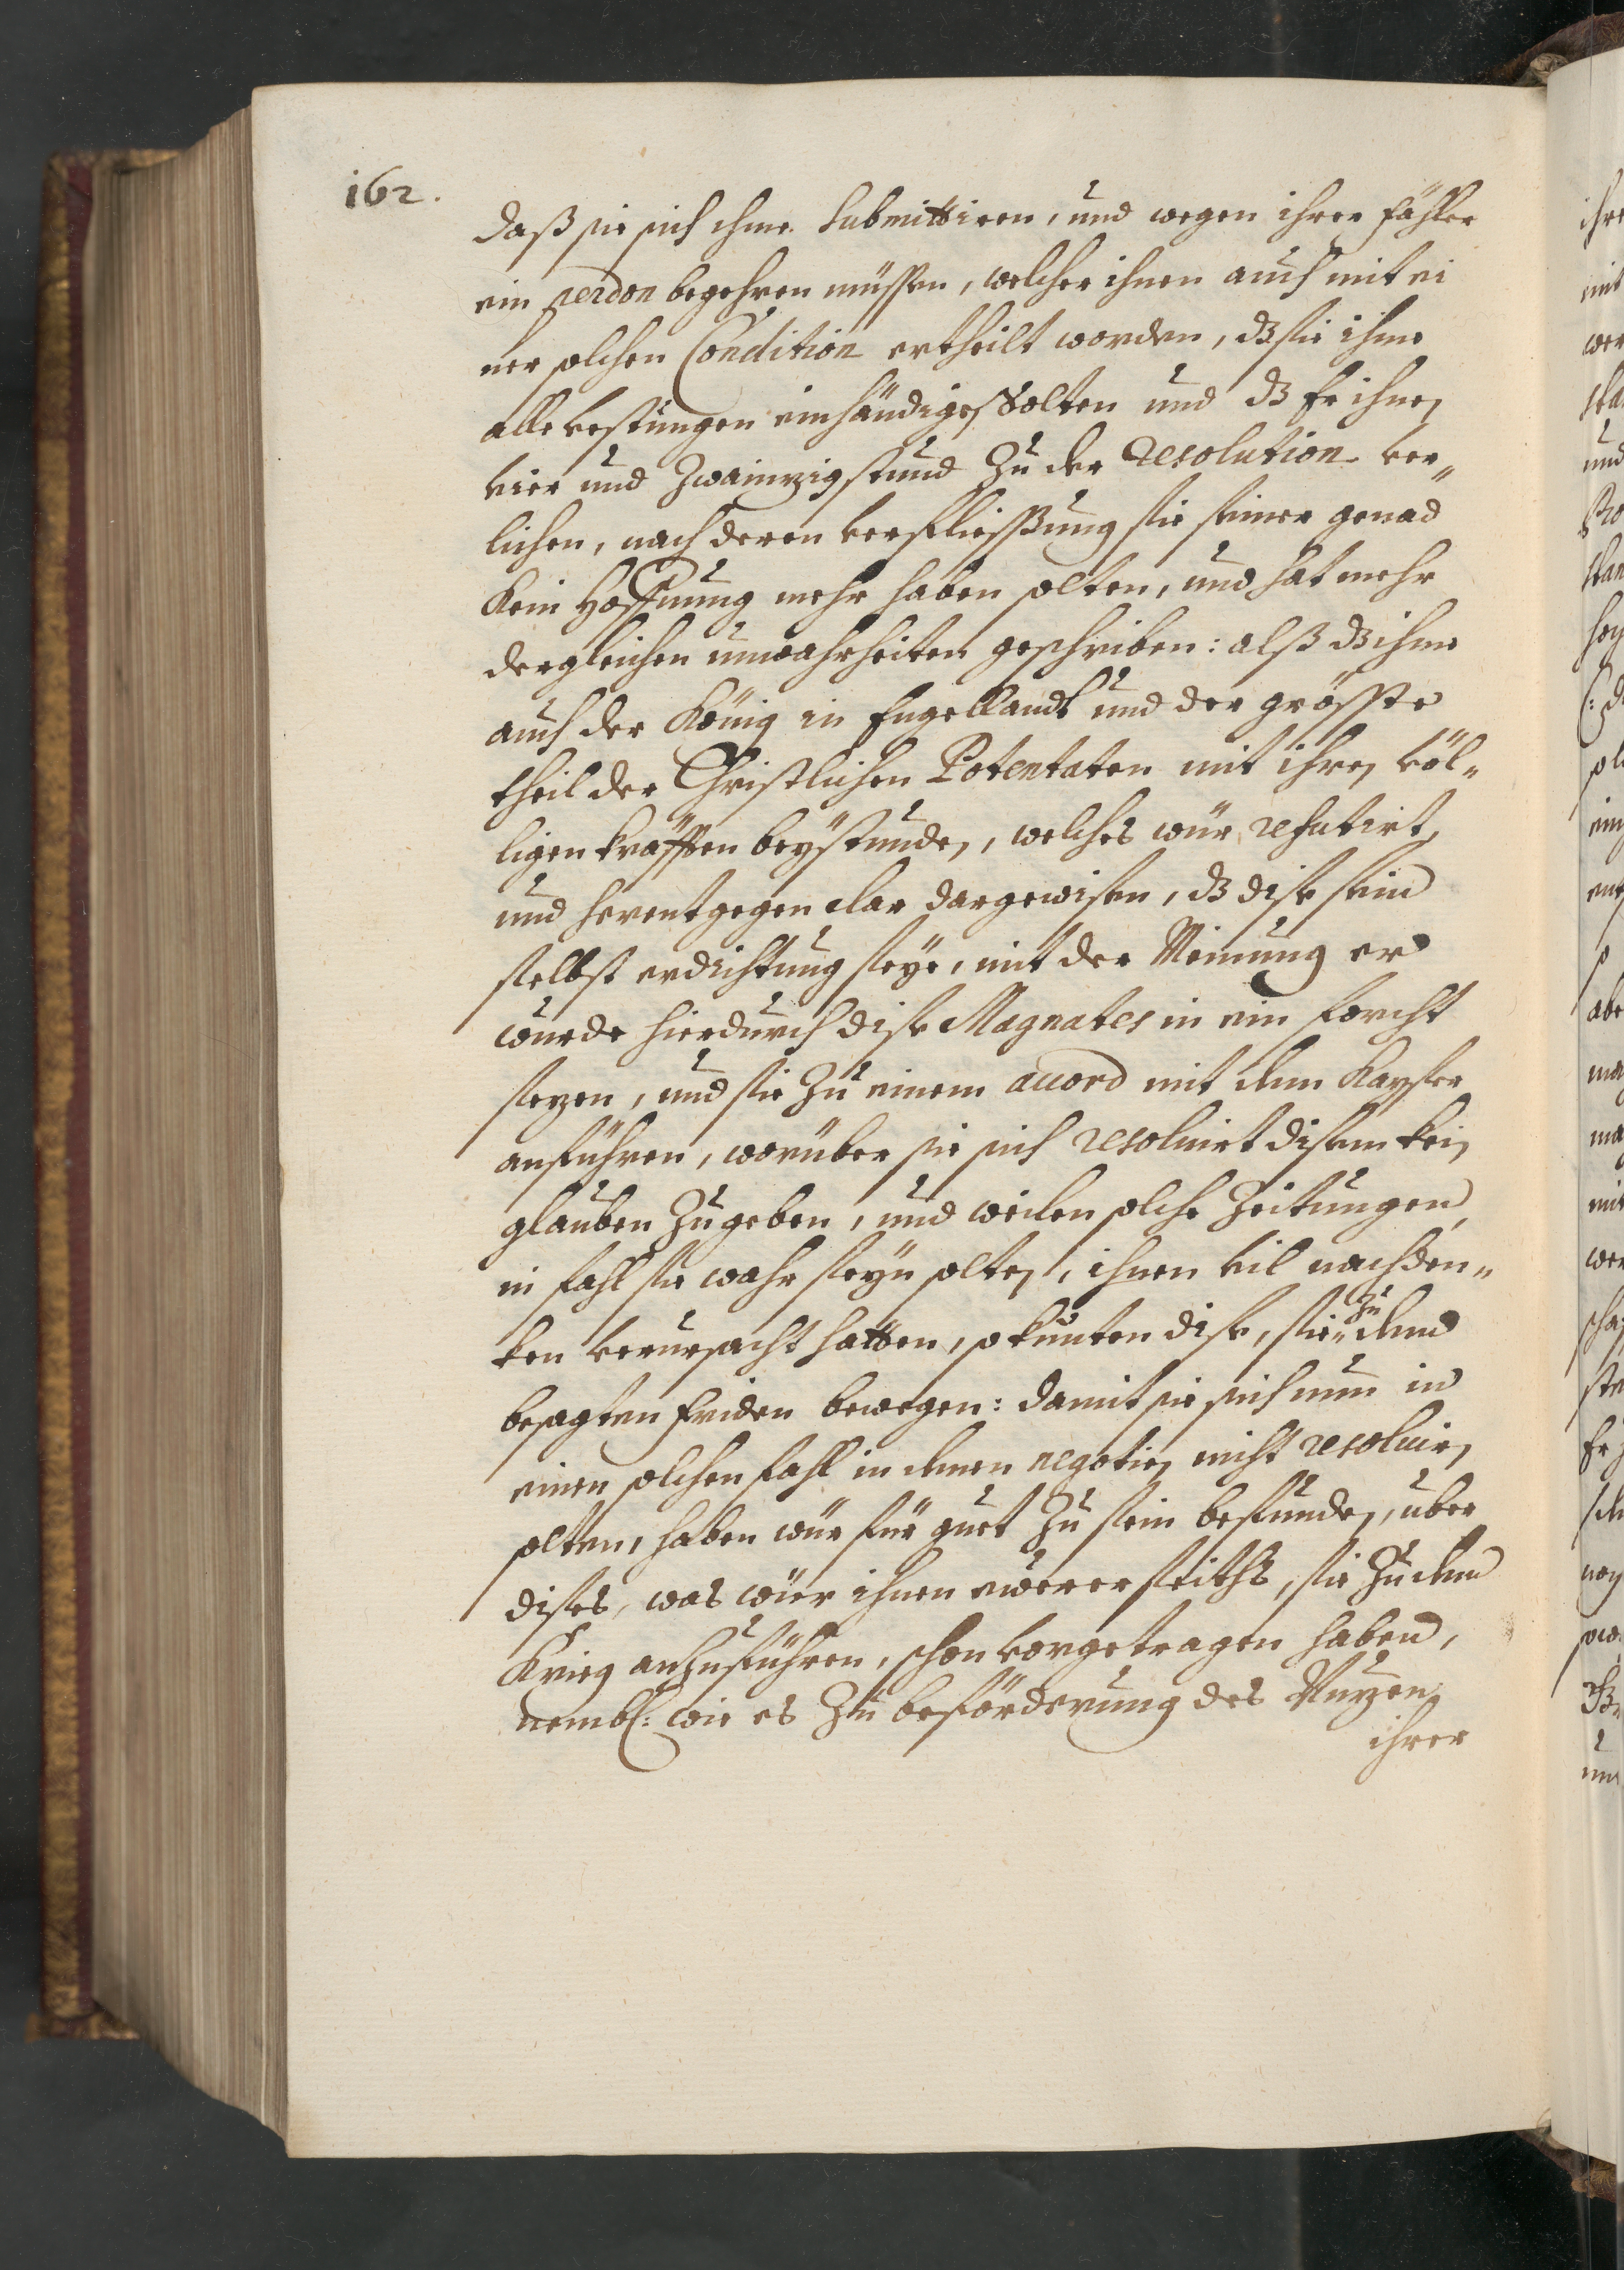 162.
daß sie sich ihme submittiren, und wegen ihrer fähler
ein perdon begehren müssen, welcher ihnen auch mit ei
ner solchen Condition ertheilt worden, dz sie ihme
alle vestungen einhändigen solten und dz Er ihnen
vier und zwainzig stund zu der resolution ver„
lichen, nach deren verfliessung sie seiner genad
kein Hoffnung mehr haben solten, und hat mehr
dergleichen unwahrheiten geschriben: alß dz ihme
auch der König in Engellandt und der gröste
theil der Christlichen Potentaten mit ihren völ„
ligen kräfften beystunden, welches wür refutirt,
und herentgegen clar dargewisen, dz dise sein
selbst erdichtung seye, mit der Meinung er
wurde hierdurch dise Magnates in ein forcht
sezen, und sie zu einem accord mit dem Kayser
anführen, worüber sie sich resolvirt disem kein
glauben zugeben, und weilen solche Zeitungen,
in fahl sie wahr seyn solten, ihnen vil nachden„
ken verursacht hatten, so kunten dise, sie zu dem
besagten friden bewegen: damit sie sich nun in
einen solchen fahl in denen negotien nicht resolvirn
solten, haben wür für guet zu sein befunden, über
dises, was wür ihnen eurer seiths, sie zu dem
Krieg anzuführen, schon vorgetragen haben,
nembl: wie es zu beförderung des Nuzen
ihrer